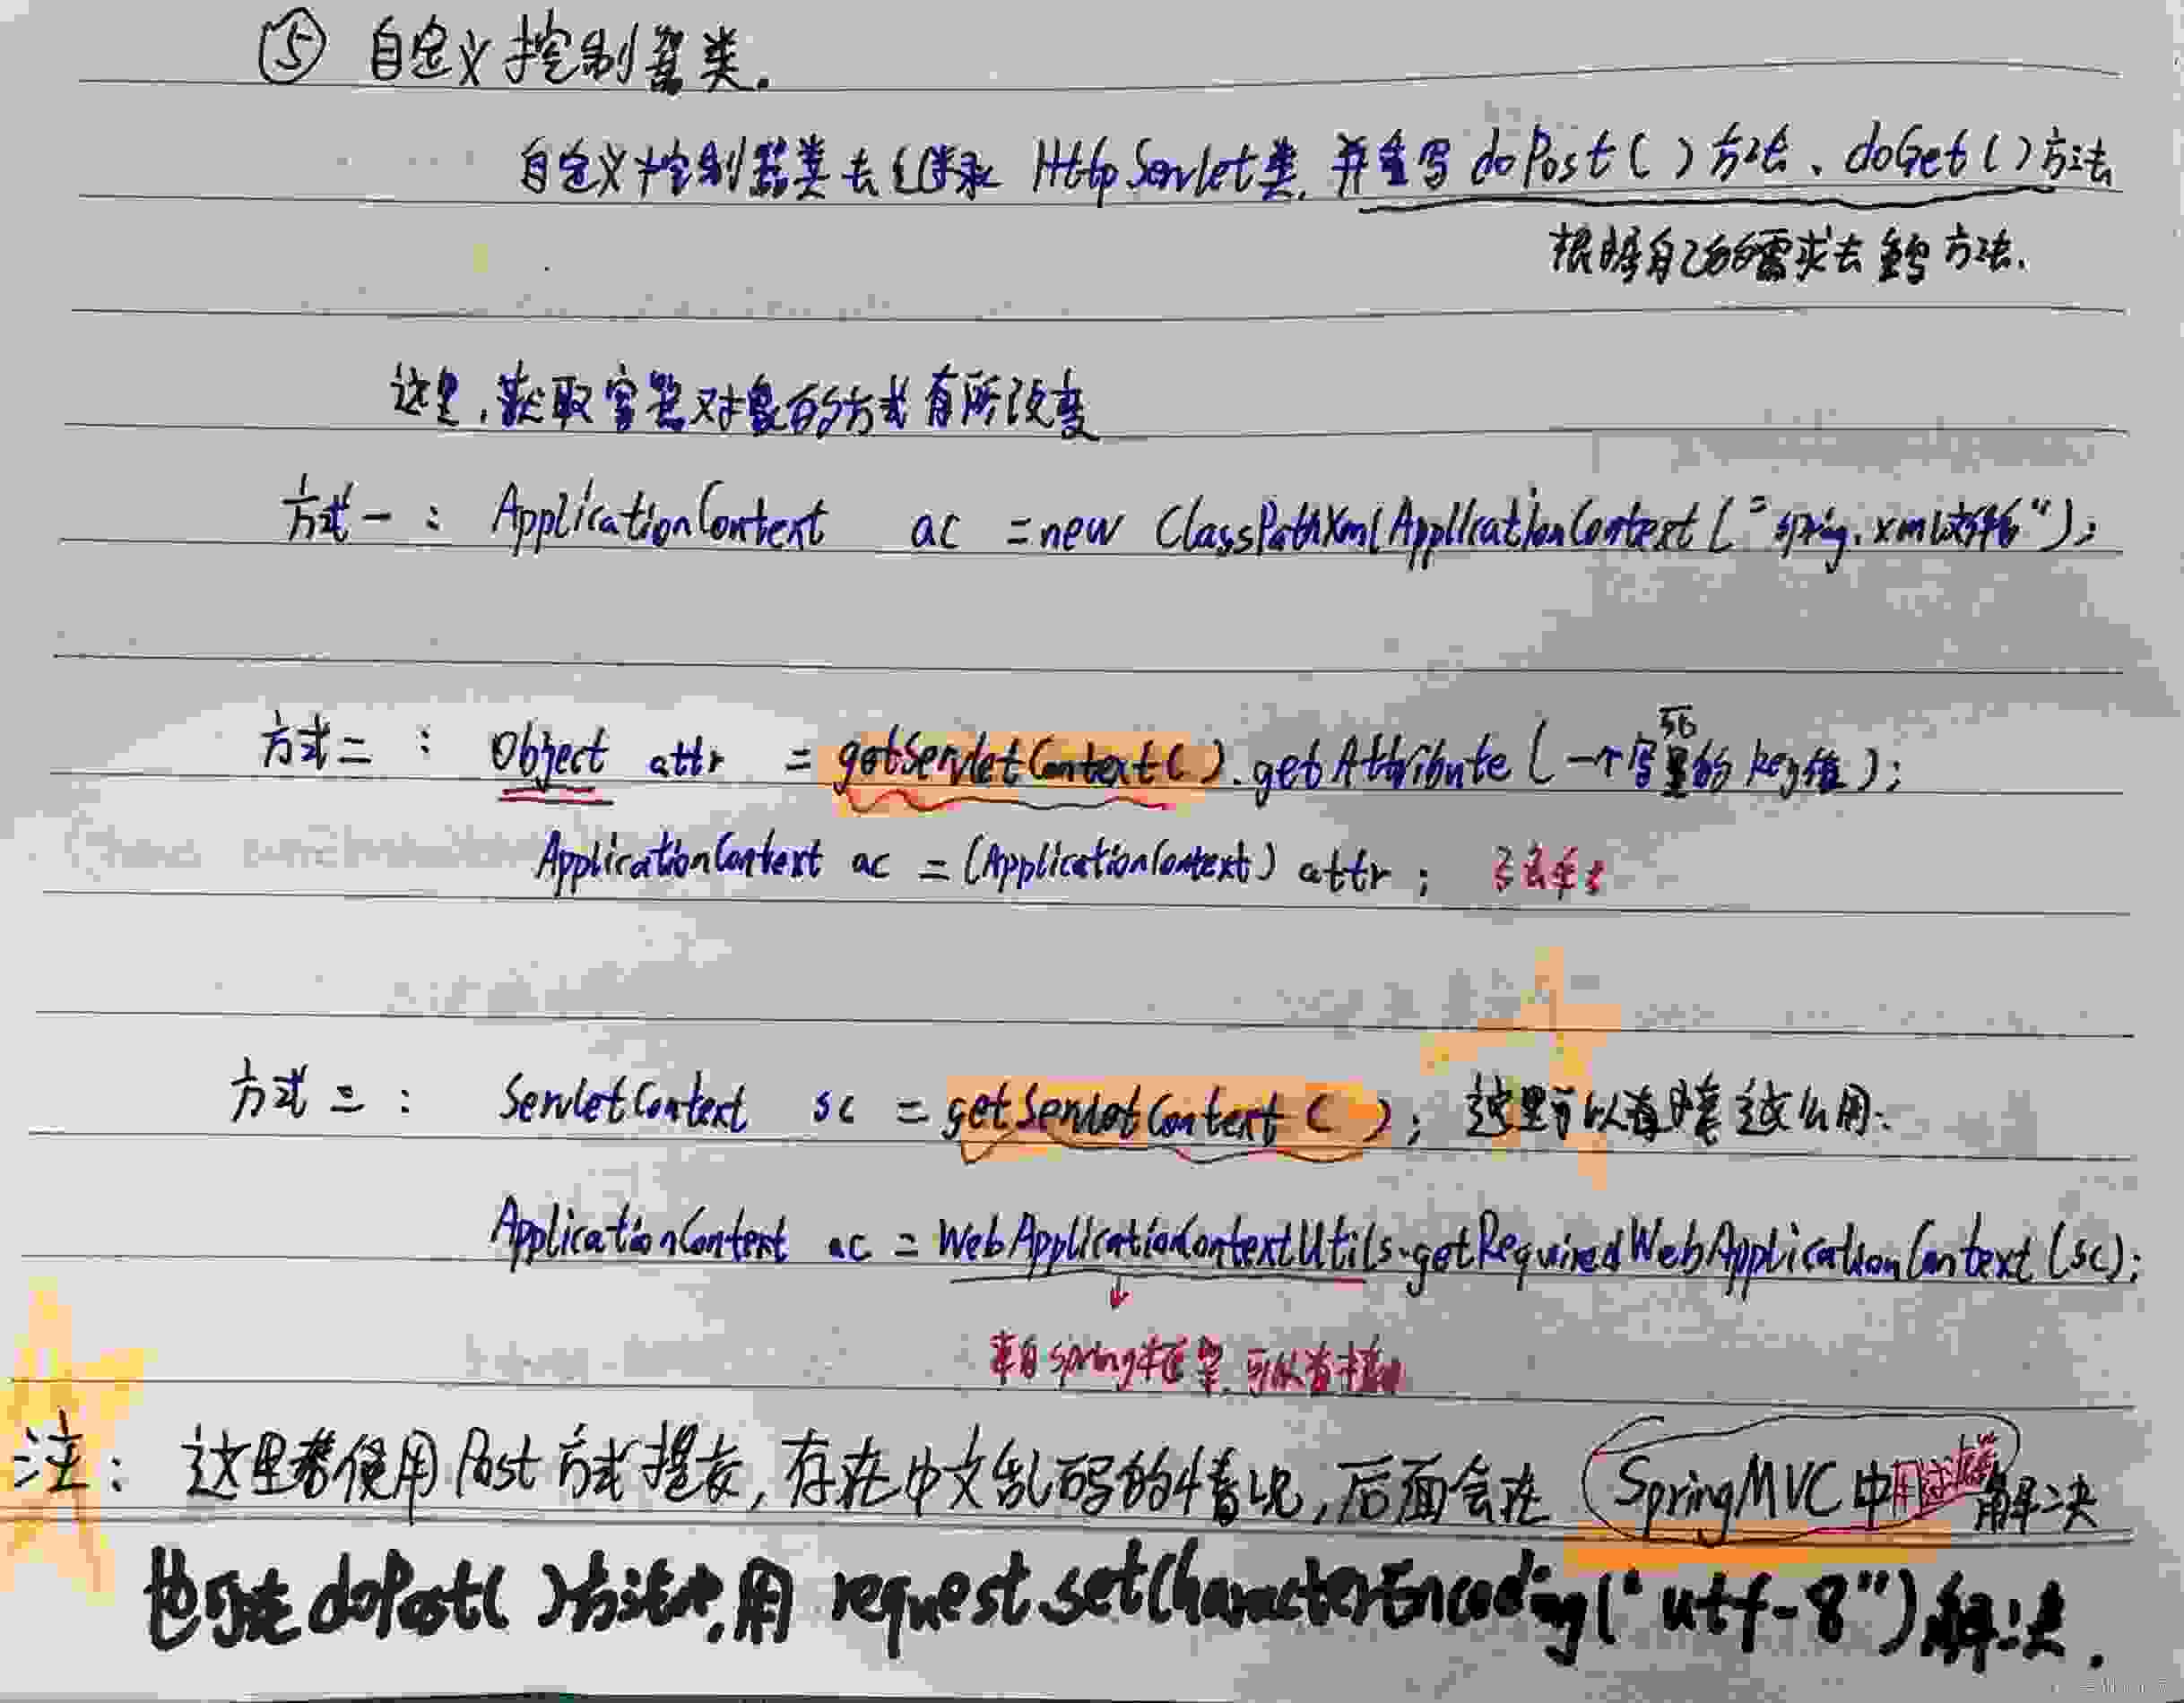 ⑤ 自定义控制器类.
自定义控制器类去继承 HttpServlet类, 并重写 doPost( ) 方法、doGet( ) 方法
根据自己的需求去重写方法.
这里, 获取容器对象的方式有所改变
方式一 : ApplicationContext ac = new ClassPathXmlApplicationContext("spring.xml文件名");
方式二 : Object attr = getServletContext( ).getAttribute(一个常量的key值);
ApplicationContext ac = (ApplicationContext) attr ;
方式三 : ServletContext sc = getServletContext ( ); 这里可以直接这么用:
ApplicationContext ac = WebApplicationContextUtils.getRequiredWebApplicationContext(sc);
↓
来自Spring框架, 可以直接用
注: 这里若使用Post方式提交, 存在中文乱码的情况, 后面会在 SpringMVC中用过滤器解决
也可在doPost( )方法中,用 request.setCharacterEncoding("utf-8")解决.